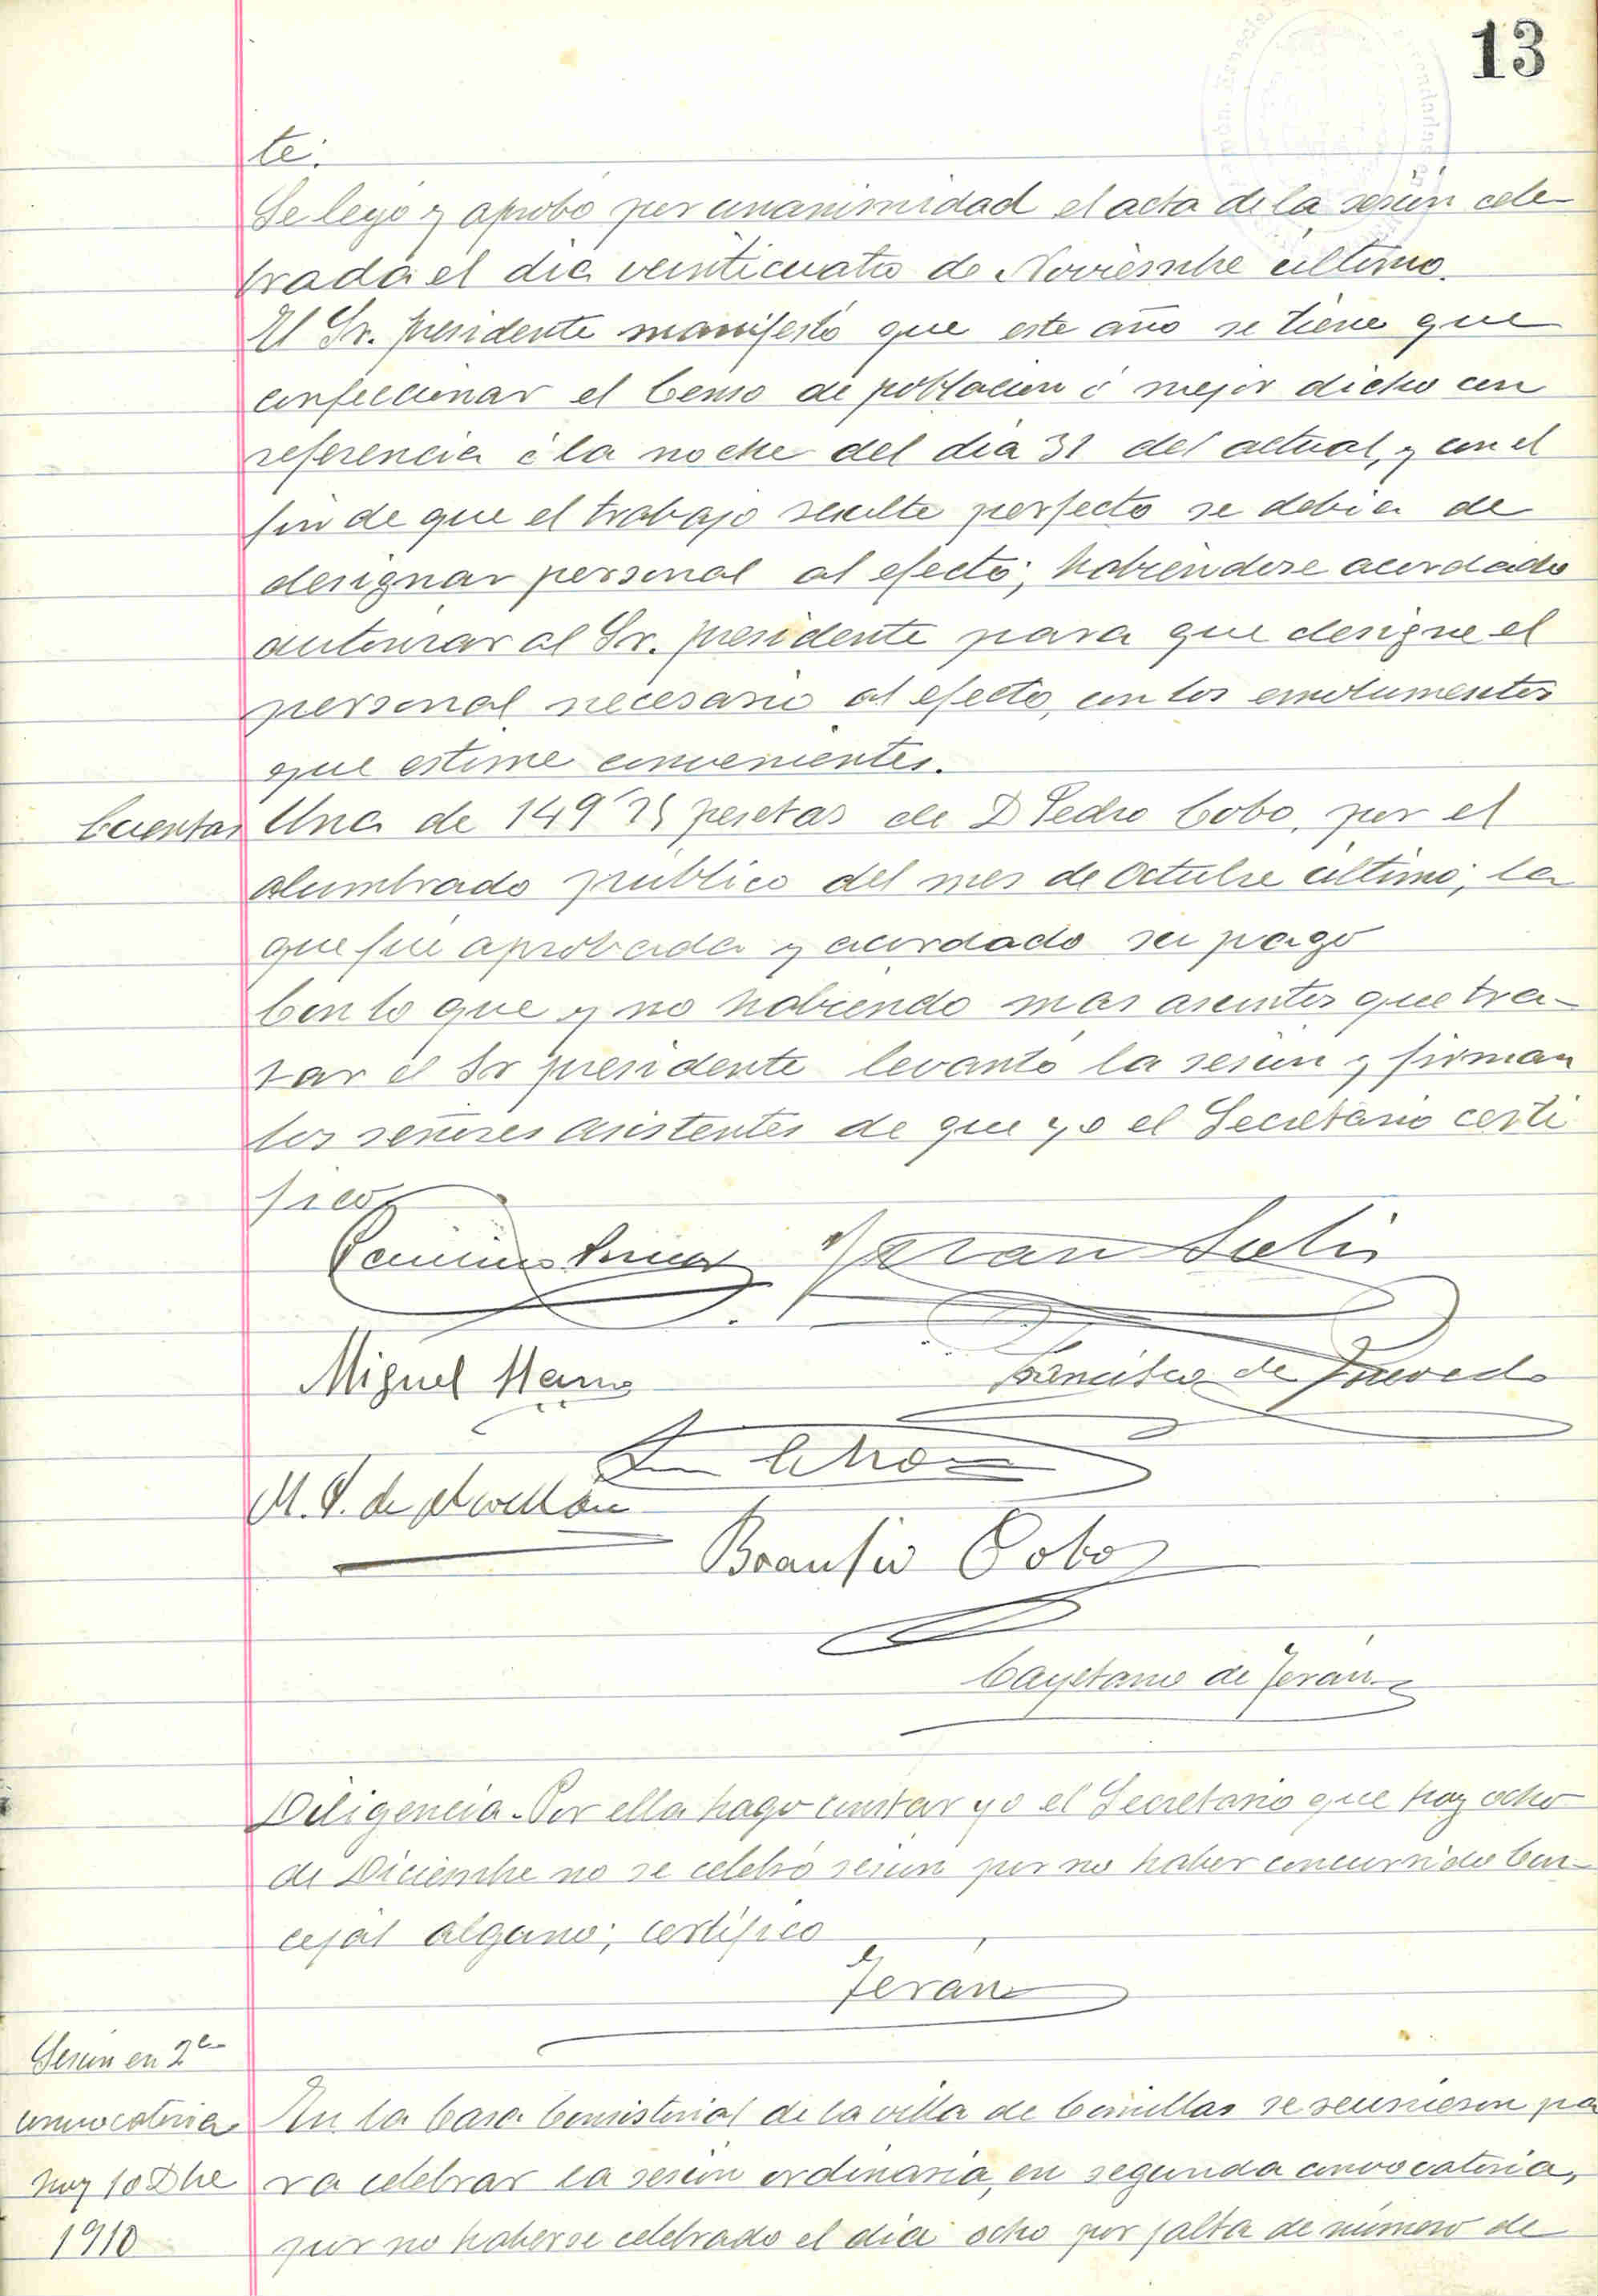 13
te.
Se leyó y aprobó por unanimidad el acta de la sesión cele-
brada el dia veinticuatro de Noviembre último.
El Sr. presidente manifestó que este año se tiene que
confeccionar el Censo de población ó mejor dicho con
referencia á la noche del dia 31 del actual, y con el
fin de que el trabajo resulte perfecto se debia de
designar personal al efecto; habiendose acordado
autorizar al Sr. presidente para que designe el
personal necesario al efecto, con los emolumentos
que estime convenientes.
Cuentas Una de 149'25 pesetas de D Pedro Cobo, por el
alumbrado público del mes de Octubre último; la
que fué aprobada y acordado su pago
Con lo que y no habiendo mas asuntos que tra-
tar el Sr presidente levantó la sesión y firman
los señores asistentes de que yo el Secretario certi
fico
Teran
Miguel
Francisco de Quevedo
M. S. de
Braulio Cobo
Cayetano de Terán
Diligencia - Por ella hago constar yo el Secretario que hoy ocho
de Diciembre no se celebró sesión por no haber concurrido Con-
cejal alguno; certifico
Terán
Sesión en 2ª
convocatoria
hoy 10 Dbre
1910
En la Casa Consistorial de la villa de Comillas se reunieron pa
ra celebrar la sesión ordinaria, en segunda convocatoria,
por no haberse celebrado el dia ocho por falta de número de